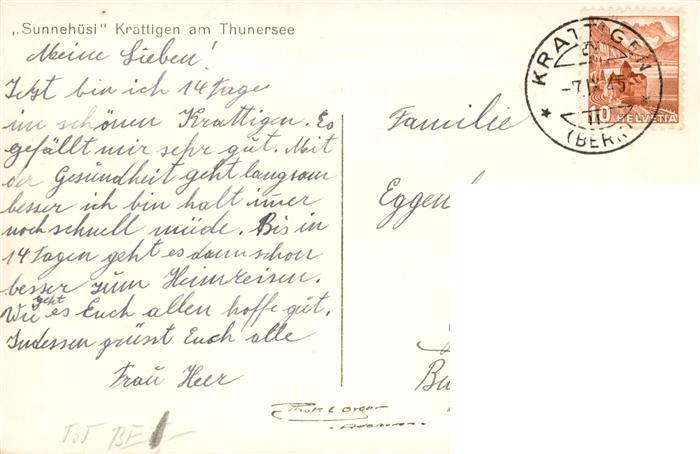 „Sunnehüsi" Krattigen am Thunersee
Meine Lieben!
Jetzt bin ich 14 Tage
im schönen Krattigen. Es
gefällt mir sehr gut. Mit
der Gesundheit geht langsam
besser ich bin halt imer
noch schnell müde. Bis in
14 Tagen geht es dann schon
besser zum Heimreisen.
Wie geht es Euch allen hoffe gut.
Indessen grüsst Euch alle
Frau Heer
KRATTIGEN
(BERN)
10 HELVETIA
Familie
Eggen
Phot. L. Gyger
Adelboden